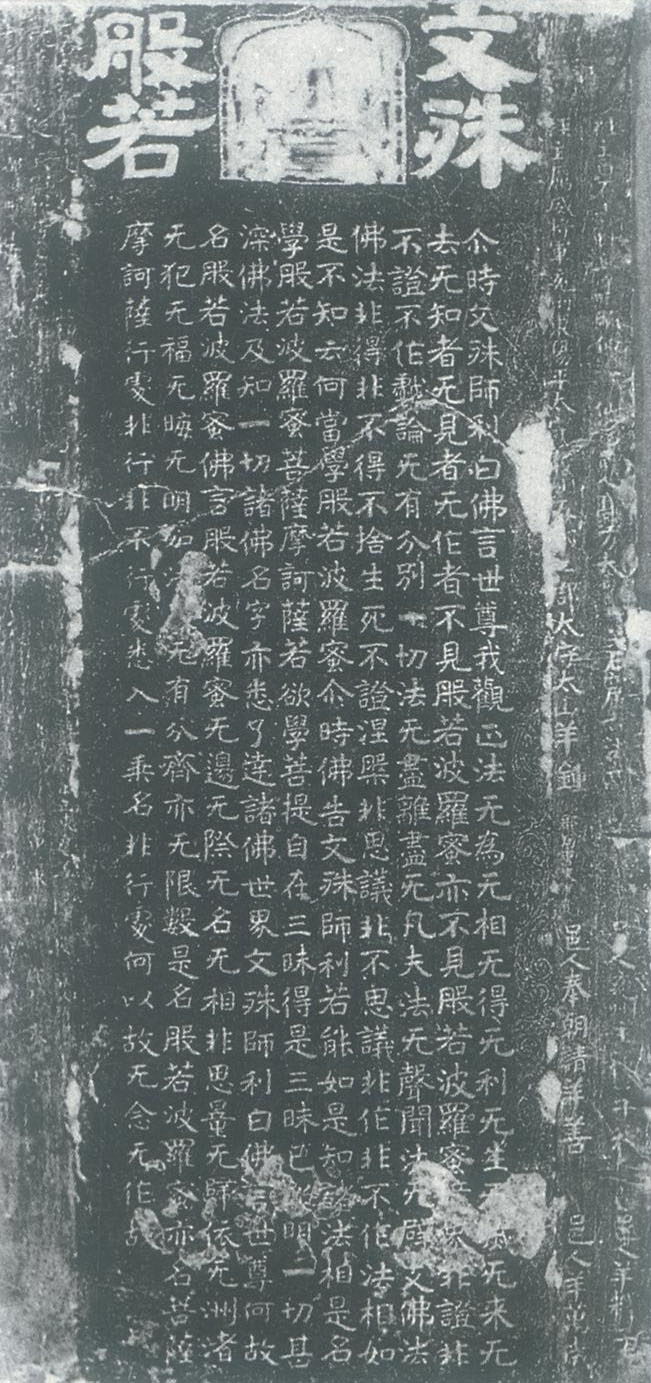 文殊
般若
太守太山羊釗
邑人奉朝請羊善
邑人羊
尒時文殊師利白佛言世尊我觀正法无為无相无得无利无生无来无
去无知者无見者无作者不見般若波羅蜜亦不見般若波羅蜜非證非
不證不作戲論无有分別一切法无盡離盡无凡夫法无聲聞法无辟支佛法
佛法非得非不得不捨生死不證涅槃非思議非不思議非作非不作法相如
是不知云何當學般若波羅蜜尒時佛告文殊師利若能如是知諸法相是名
學般若波羅蜜菩薩摩訶薩若欲學菩提自在三昧得是三昧已明一切甚
深佛法及知一切諸佛名字亦悉了達諸佛世界文殊師利白佛言世尊何故
名般若波羅蜜佛言般若波羅蜜无邊无際无名无相非思量无歸依无洲渚
无犯无福无晦无明如法无有分齊亦无限數是名般若波羅蜜亦名菩薩
摩訶薩行處非行非不行處悉入一乘名非行處何以故无念无作故